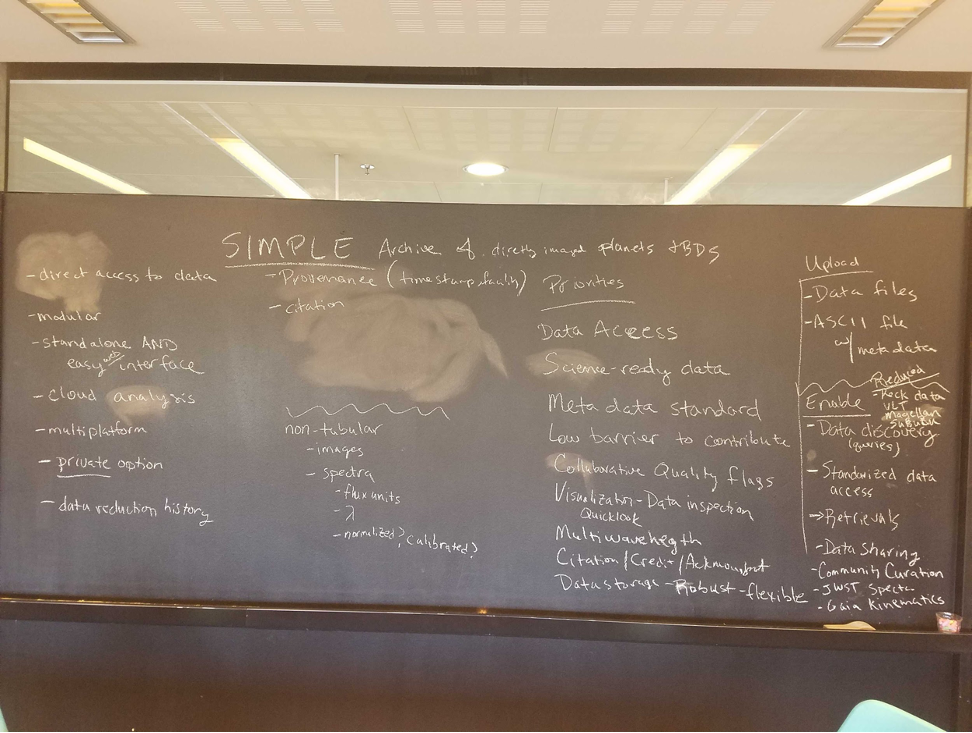 SIMPLE Archive of directly imaged planets & BDS
- direct access to data
- modular
- standalone AND
easy web interface
- cloud analysis
- multiplatform
- private option
- data reduction history
- Provenance (timestamp, facility)
- citation
non-tabular
- images
- spectra
- flux units
- λ
- normalized? calibrated?
Priorities
Data Access
Science-ready data
Meta data standard
Low barrier to contribute
Collaborative Quality flags
Visualization - Data inspection
Quicklook
Multiwavelength
Citation/Credit/
Data storage - Robust - flexible
Upload
- Data files
- ASCII file
w/ meta data
Reduced
- Keck data
VLT
Magellan
Subaru
Enable
- Data discovery
(queries)
- Standardized data
access
→ Retrievals
- Data sharing
- Community Curation
- JWST Spectra
- Gaia Kinematics